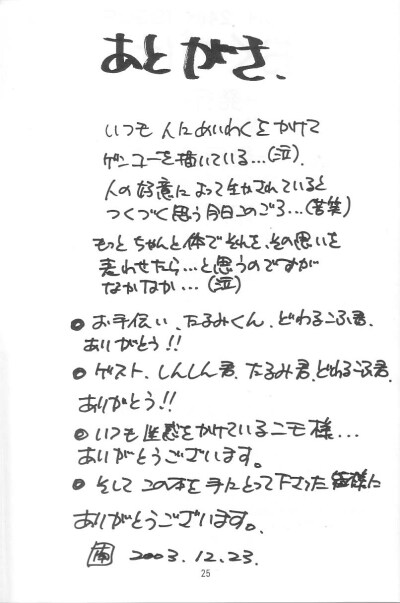 あとがき、
いつも人にめいわくをかけて
ゲンコーを描いている…(泣).
人の好意によって生かされていると
つくづく思う今日このごろ…(苦笑)
もっとちゃんと体でそれを、その思いを
表わせたら…と思うのですが
なかなか…(泣)
●お手伝い、たるみくん、どわるこふ君.
ありがとう!!
●ゲスト、しんしん君、たるみ君、どわるこふ君.
ありがとう!!
●いつも迷惑をかけているニモ様…
ありがとうございます。
●そしてこの本を手にとって下さった皆様に
ありがとうございます。
2003.12.23.
25